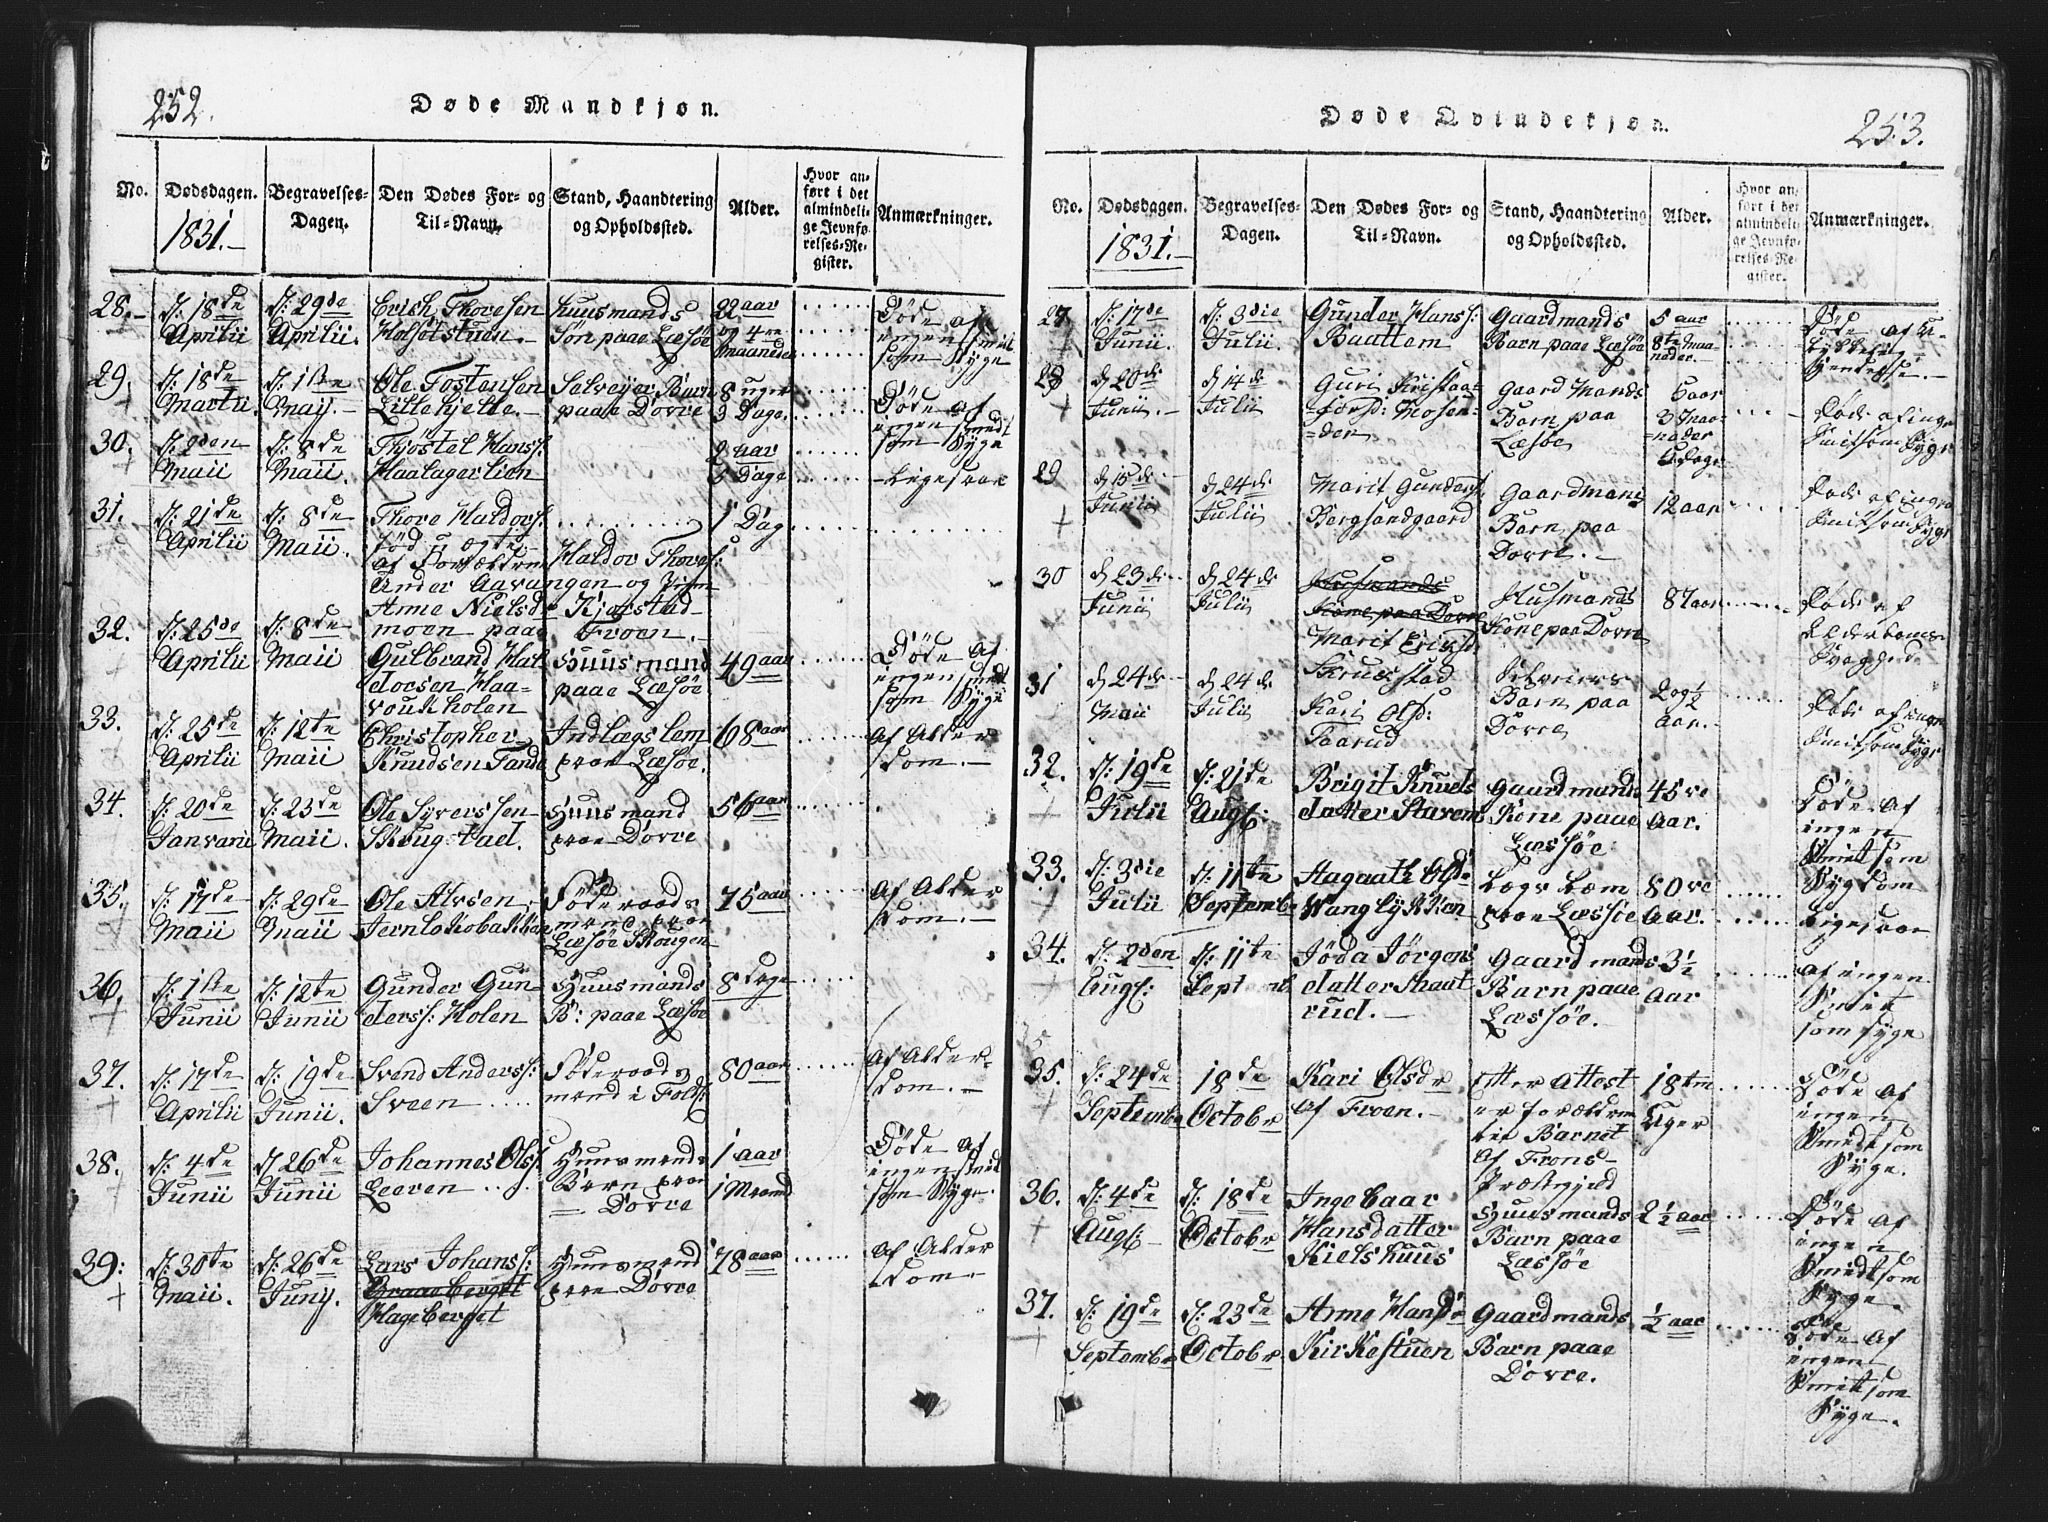 252.
Døde Mandkjøn.
No.
Dødsdagen.
1831.-
Begravelses-
Dagen.
Den Dødes For- og
Til-Navn.
Stand, Haandtering
og Opholdssted.
Alder.
Hvor an-
ført i det
almindeli-
ge Jevnfø-
relses-Re-
gister.
Anmærkninger.
28.- d: 18de Aprilii d: 29de Aprilii. Erich Thoresen Holsötstuen.- huusmands Søn paae Læsøe 22 aar og 4re Maaneder Døde af ingen smit som Syge
29. d: 18de Martii. d: 1ste May.- Ole Tostensen Lillehjelle.- Selvejer Barn paae Dovre 8 uger 3 Dage. Døde af ingen smit som Syge
30. d: 2den Maii d: 8de Maii. Thjöstel Hanss: Haalagerlien 2 aar 3 Dage - Ligesaae
31. d: 21de Aprilii d: 8de Maii. Thore Haldors: fød u ægte af Forældrene Haldor Thores: Ander Aavangen og Pigen Anne Nielsd Kjorstad- moen paae Froen.- 1 Dag
32. d: 25de Aprilii d: 8de Maii Gulbrand Hal- dorsen Haa- voukholen Huusmand paae Læsøe 49 aar Døde af ingen smit som Syge
33. d: 25de Aprilii d: 12te Maii Christopher Knudsen Tande Indlægslem paae Læsøe. 68 aar Af Alder dom.-
34. d: 20de Janvarii d: 23de Maii. Ole Syverssen Skougstael. Huusmand paae Dovre 56 aar
35. d: 17de Maii d: 29de Maii Ole Alvsen Jernlokobakken Föderaads mand paae Læsøe Skougen 75 aar Af Alder dom.-
36. d: 1ste Junii d: 12te Junii Gunder Gun- derss: Holen Huusmands B: paae Læsøe 8 Dage
37. d: 17de Aprilii d: 19de Junii. Svend Anderss: Sveen Föderaads mand i Folds: 80 aar Af Alder- dom.-
38. d: 4de Junii d 26de Junii Johannes Olss: Leeren Huusmands Barn paae Dovre 1 aar 1 Maaned Døde af ingen smit som Syge.
39: d: 30te Maii. d: 26de Juny. Lars Johanss: Braaeberget Hageberget Huusmand paae Dovre 78 aar Af Alder dom.-
Døde Qvindekjøn.
253.
No.
Dødsdagen.
1831.-
Begravelses-
Dagen.
Den Dødes For- og
Til-Navn.
Stand, Haandtering
og Opholdssted.
Alder.
Hvor an-
ført i det
almindeli-
ge Jevnfø-
relses-Re-
gister.
Anmærkninger.
27 d: 17de Junii. d: 3die Julii. Gunder Hanss: Baattem Gaardmands Barn paae Læsøe 5 aar 8te Maa- neder. Døde af U- lykkelig Hendelse.-
28 d 20de Junii.- d 14de Julii Guri Kristaa- forsd: Mosen- den Gaard Mands Barn paa Læsøe 6 aar 3 Maa- neder 6 dage Døde af ingen Smitsom Syge
29 d 15de Junii d 24de Julii Marit Gunders: Bergsandgaard Gaardmans Barn paa Dovre.- 12 aar Døde af ingen Smitsom Syge
30 d 23de Junii d 24de Julii Husmands Kone paa Dovre Marit Eriksd Skrusstad Husmands Kone paa Dovre 87 aar Døde af Alderdoms- Svaghed
31 d 24de Maii d 24de Julii Kari Olsd: Taarud Selveiers Barn paa Dovre 2 og ½ aar.- Døde af ingen Smitsom Syge
32. d: 19de Julii d: 21de Augs: Brigit Knuds datter Stavem Gaardmands Kone paae Læssøe 45 re Aar. Døde Af ingen Smit som Sygdom
33. d: 3die Julii d: 11te Septembr Aagaate Olsd: Wanglykken Lægs Læm paae Læssøe 80 re Aar. Ligesaae
34. d: 2den Augs: d: 11te Septembr Jöda Jörgens datter Skaat rud.- Gaardmands Barn paae Læssøe.- 3½ Aar af ingen Smit som Syge
35. d: 24de Septembr 18de Octobr Kari Olsdr af Froen.- Efter Attest er forældrene til Barnet Af Frons- Præstegjeld 18ten Uger Døde Af ingen Smitsom Syge.
36. d: 4de Augs:- d: 18de Octobr Ingebaar Hansdatter Kielshuus Huusmands Barn paae Læssøe 2½ aar Døde Af ingen Smitsom Syge.
37. d: 19de Septembr d: 23de Octobr Anne Hansd: Kirkestuen Gaardmands Barn paae Dovre. ½ aar Døde Af ingen Smitsom Syge.